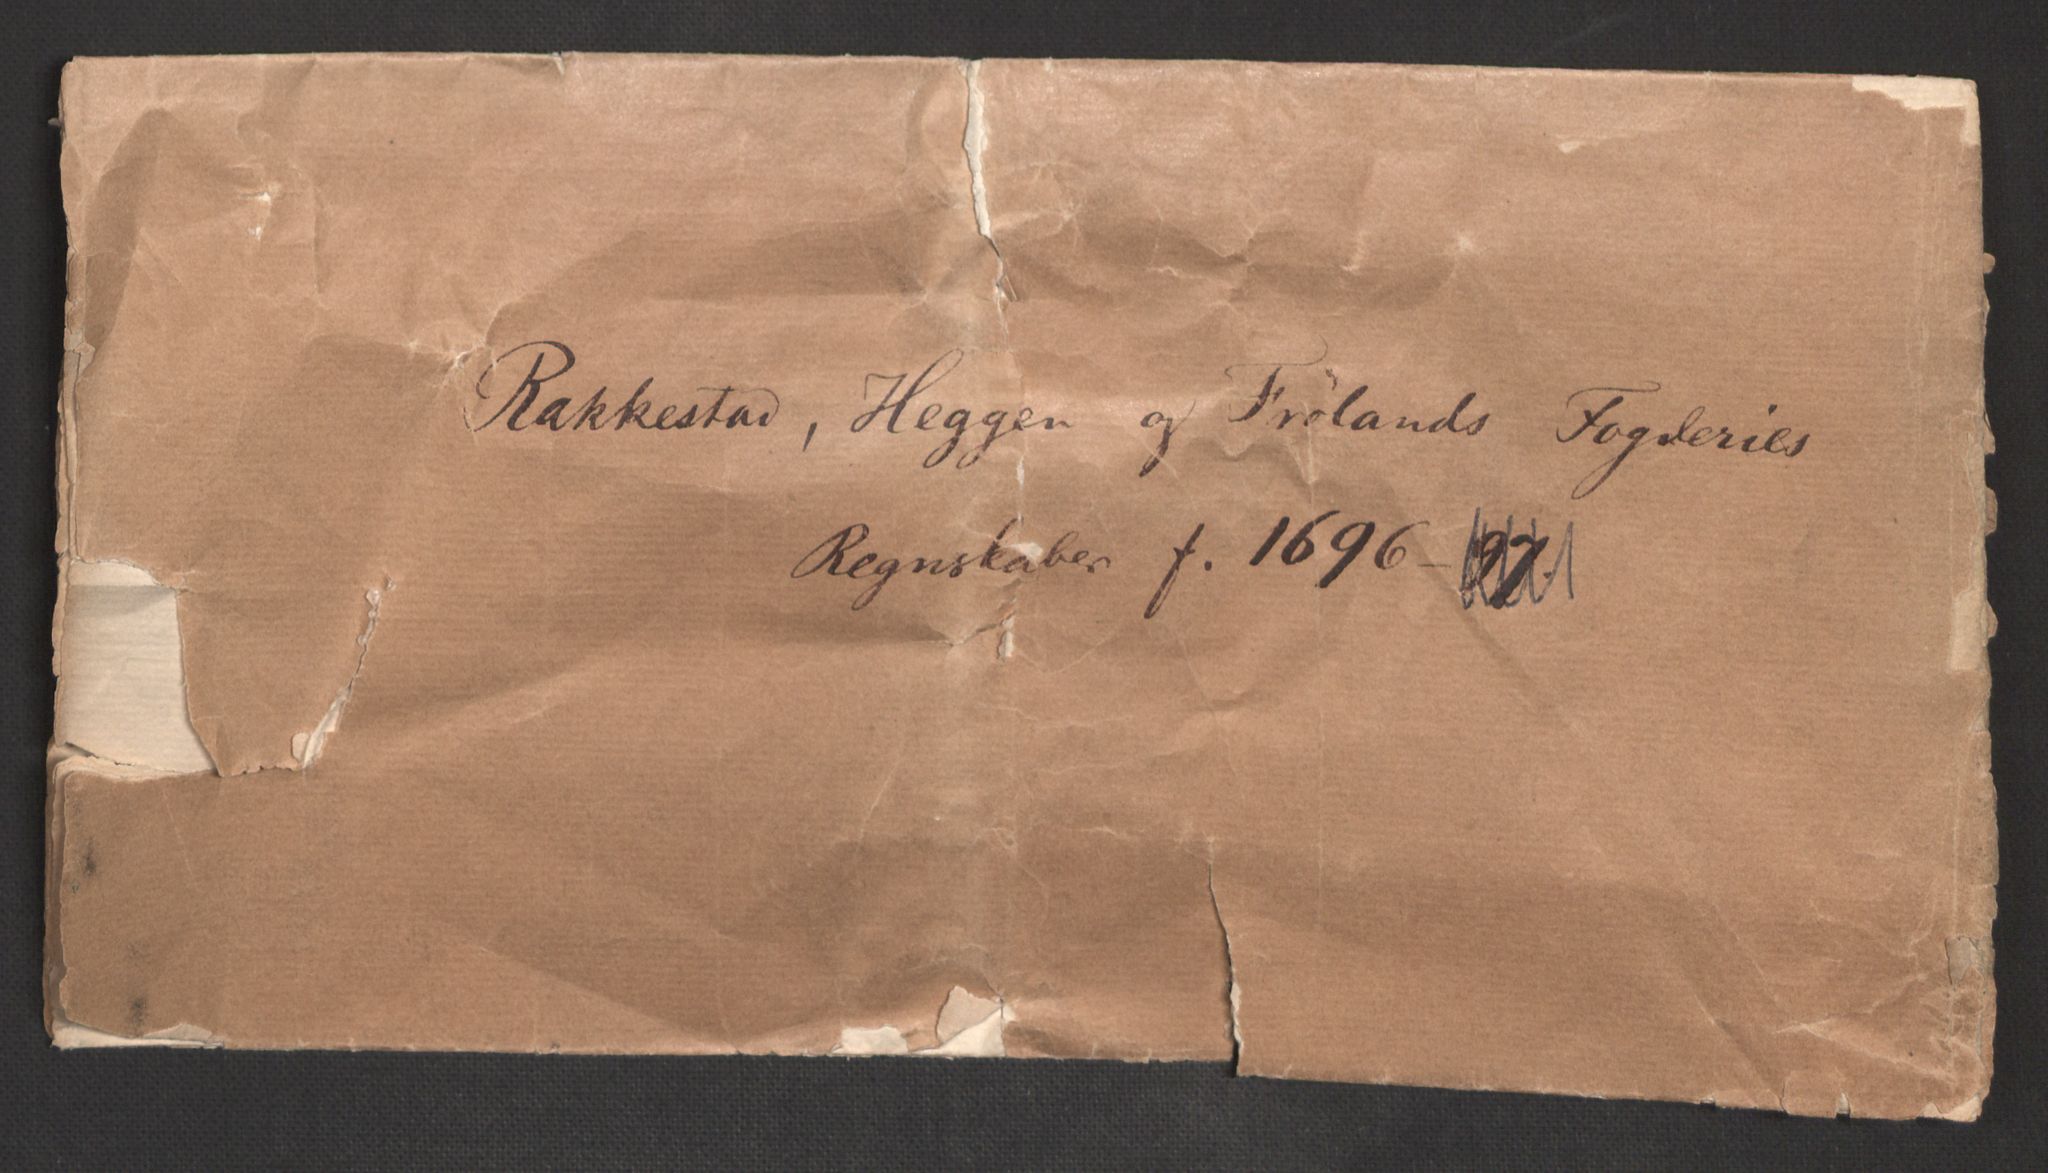 Rakkestad, Heggen og Frölands Fogderies
Regnskaber f. 1696-97.